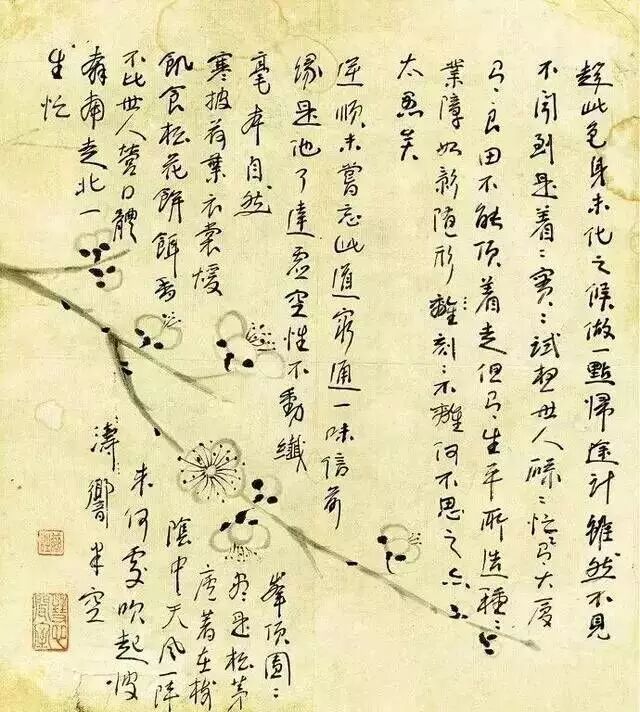 趁此色身未化之候做一點歸途計雖然不見
不聞到是着〻實〻試想世人碌〻忙大廈
良田不能頂着走但生平所造種〻
業障如影隨形刻〻不離何不思之
太愚矣
逆順未嘗忘此道窮通一味信前
緣是他了達虛空性不動纖
毫本自然
寒披荷葉衣裳煖
飢食松花餅餌香
不比世人營口體
奔南走北一
生忙
峯頂團〻
盡是松茅
著在樹
陰中天風一陣
來何處吹起波
濤響半空